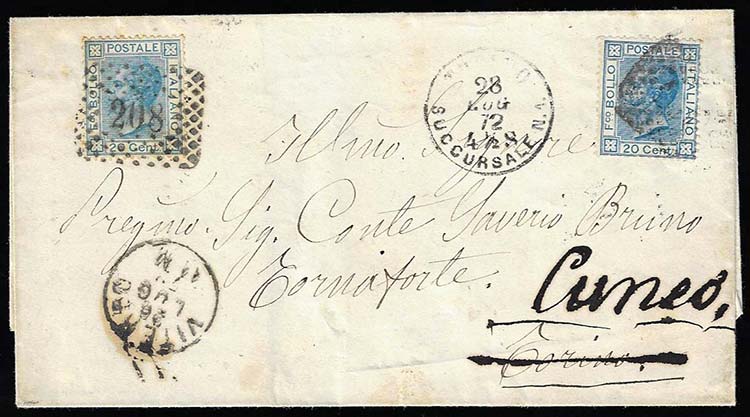 POSTALE
Fco BOLLO
ITALIANO
20 Cent.
208
28
LUG
72
4 R S
SUCCURSALE N.
POSTALE
Fco BOLLO
ITALIANO
20 Cent.
Illmo Signore
Pregmo. Sig. Conte Saverio Bruno
Tornaforte.
Cuneo,
Torino.
VITERBO
26
LUG